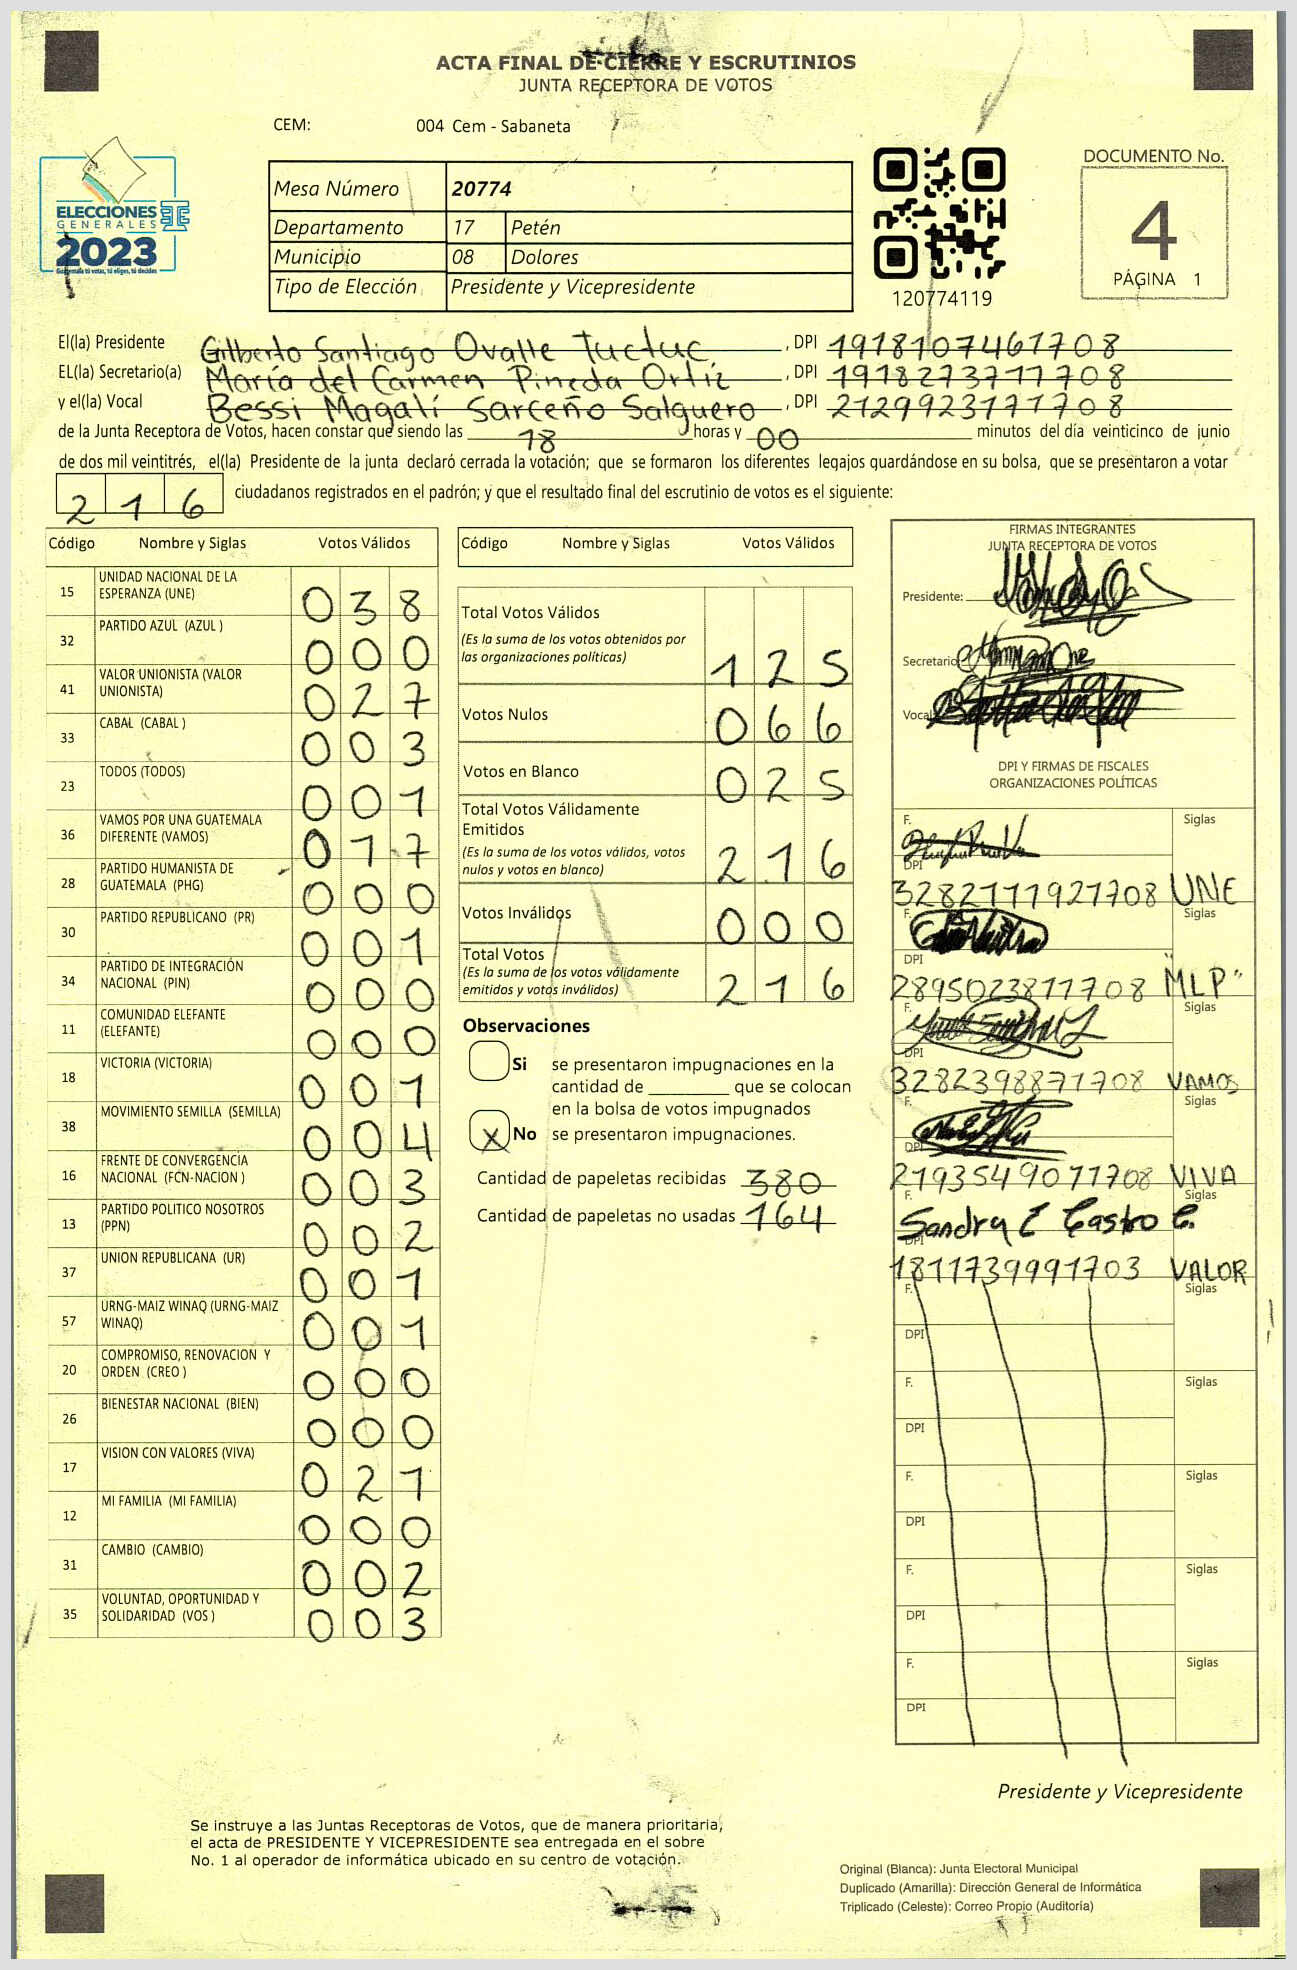 ACTA FINAL DE CIERRE Y ESCRUTINIOS
JUNTA RECEPTORA DE VOTOS
CEM: 004 Cem - Sabaneta
ELECCIONES
GENERALES
2023
Guatemala tú votas, tú eliges, tú decides
Mesa Número 20774
Departamento 17 Petén
Municipio 08 Dolores
Tipo de Elección Presidente y Vicepresidente
120774119
DOCUMENTO No.
4
PÁGINA 1
El(la) Presidente Gilberto Santiago Ovalle Tuctuc, DPI 1918107461708
EL(la) Secretario(a) María del Carmen Pineda Ortíz, DPI 1918273711708
y el(la) Vocal Bessi Magalí Sarceño Salguero, DPI 2129923171708
de la Junta Receptora de Votos, hacen constar que siendo las 18 horas y 00 minutos del día veinticinco de junio
de dos mil veintitrés, el(la) Presidente de la junta declaró cerrada la votación; que se formaron los diferentes legajos guardándose en su bolsa, que se presentaron a votar
216 ciudadanos registrados en el padrón; y que el resultado final del escrutinio de votos es el siguiente:
Código Nombre y Siglas Votos Válidos
15 UNIDAD NACIONAL DE LA ESPERANZA (UNE) 038
32 PARTIDO AZUL (AZUL ) 000
41 VALOR UNIONISTA (VALOR UNIONISTA) 027
33 CABAL (CABAL ) 003
23 TODOS (TODOS) 001
36 VAMOS POR UNA GUATEMALA DIFERENTE (VAMOS) 017
28 PARTIDO HUMANISTA DE GUATEMALA (PHG) 000
30 PARTIDO REPUBLICANO (PR) 001
34 PARTIDO DE INTEGRACIÓN NACIONAL (PIN) 000
11 COMUNIDAD ELEFANTE (ELEFANTE) 000
18 VICTORIA (VICTORIA) 001
38 MOVIMIENTO SEMILLA (SEMILLA) 004
16 FRENTE DE CONVERGENCIA NACIONAL (FCN-NACION ) 003
13 PARTIDO POLITICO NOSOTROS (PPN) 002
37 UNION REPUBLICANA (UR) 001
57 URNG-MAIZ WINAQ (URNG-MAIZ WINAQ) 001
20 COMPROMISO, RENOVACION Y ORDEN (CREO ) 000
26 BIENESTAR NACIONAL (BIEN) 000
17 VISION CON VALORES (VIVA) 021
12 MI FAMILIA (MI FAMILIA) 000
31 CAMBIO (CAMBIO) 002
35 VOLUNTAD, OPORTUNIDAD Y SOLIDARIDAD (VOS ) 003
Código Nombre y Siglas Votos Válidos
Total Votos Válidos
(Es la suma de los votos obtenidos por
las organizaciones políticas) 125
Votos Nulos 066
Votos en Blanco 025
Total Votos Válidamente
Emitidos
(Es la suma de los votos válidos, votos
nulos y votos en blanco) 216
Votos Inválidos 000
Total Votos
(Es la suma de los votos válidamente
emitidos y votos inválidos) 216
Observaciones
Si se presentaron impugnaciones en la
cantidad de ________ que se colocan
en la bolsa de votos impugnados
X No se presentaron impugnaciones.
Cantidad de papeletas recibidas 380
Cantidad de papeletas no usadas 164
FIRMAS INTEGRANTES
JUNTA RECEPTORA DE VOTOS
Presidente:
Secretario
Vocal
DPI Y FIRMAS DE FISCALES
ORGANIZACIONES POLÍTICAS
F. Siglas
DPI
3282111921708 UNE
F. Siglas
DPI
2895023811708 "MLP"
F. Siglas
DPI
3282398871708 VAMOS
F. Siglas
DPI
2193549071708 VIVA
F. Siglas
Sandra E Castro C.
DPI
1811739991703 VALOR
F. Siglas
DPI
F. Siglas
DPI
F. Siglas
DPI
F. Siglas
DPI
F. Siglas
DPI
Presidente y Vicepresidente
Se instruye a las Juntas Receptoras de Votos, que de manera prioritaria,
el acta de PRESIDENTE Y VICEPRESIDENTE sea entregada en el sobre
No. 1 al operador de informática ubicado en su centro de votación.
Original (Blanca): Junta Electoral Municipal
Duplicado (Amarilla): Dirección General de Informática
Triplicado (Celeste): Correo Propio (Auditoría)